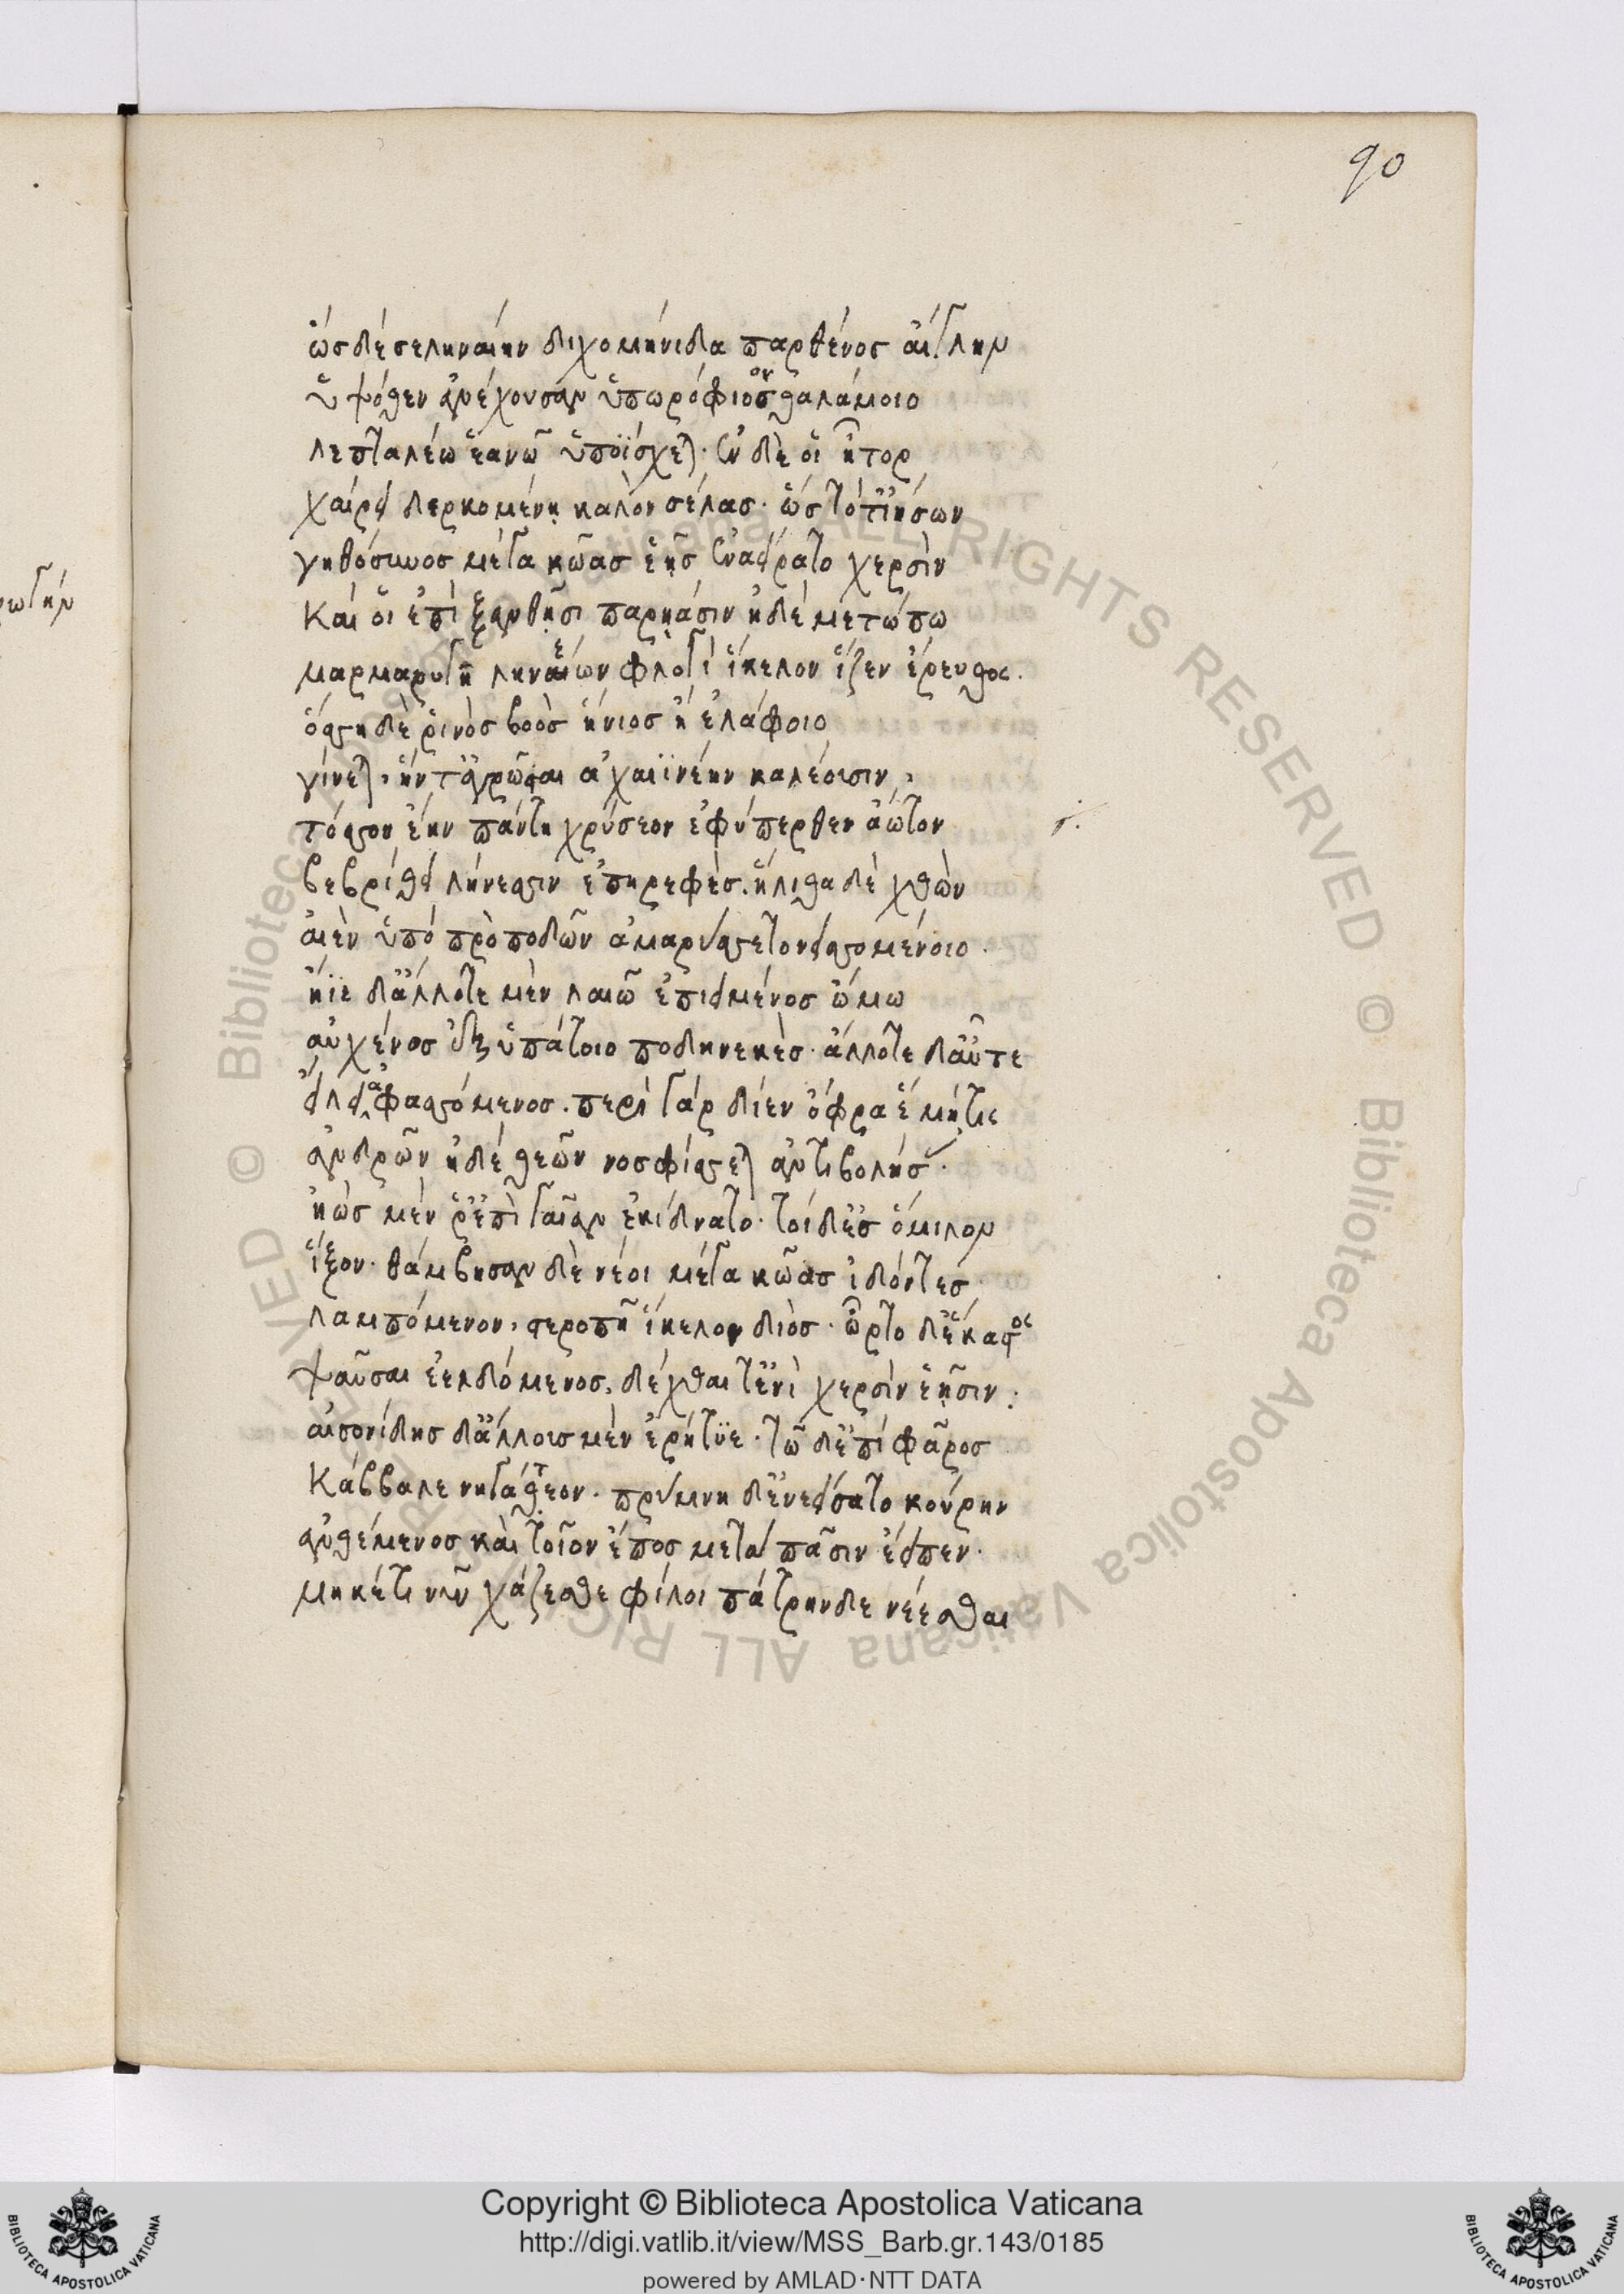 90
ὡς δὲ σεληναίην διχομήνιδα παρθένος αἴγλην
ὑψόθεν ἀνέχουσαν ὑπωρόφιος θαλάμοιο
λεπταλέω ἑανῶ ὑποΐσχεται· ἐν δέ οἱ ἦτορ
χαίρει δερκομένης καλὸν σέλας· ὣς τότ' ἰήσων
γηθόσυνος μέγα κῶας ἑῆς ἐναείρατο χερσὶν
Καί οἱ ἐπὶ ξανθῆσι παρηάσιν ἠδὲ μετώπω
μαρμαρυγῆ ληναίων φλογὶ ἴκελον ἷζεν ἔρευθος.
ὅσση δὲ ῥινὸς βοὸς ἤνιος ἢ ἐλάφοιο
γίνεται, ἥν τ' ἀγρῶσται ἀχαιϊνέην καλέουσιν,
τόσσον ἔην πάντη χρύσεον ἐφύπερθεν ἄωτον
βεβρίθει λήνεσσιν ἐπηρεφὲς. ἤλιθα δὲ χθὼν
αἰὲν ὑπὸ πρὸ ποδῶν ἀμαρύσσετο νεισσομένοιο.
ἤϊε δ' ἄλλοτε μὲν λαιῶ ἐπιειμένος ὤμω
αὐχένος ἐξ ὑπάτοιο ποδηνεκὲς. ἄλλοτε δ' αὖτε
εἴλει ἀφασσόμενος. περὶ γὰρ δίεν ὄφρα ἑ μή τις
ἀνδρῶν ἠδὲ θεῶν νοσφίσσεται ἀντιβολήσας.
ἠὼς μέν ῥ' ἐπὶ γαῖαν ἐκίδνατο. τοὶ δ' ἐς ὅμιλον
ἷξον. θάμβησαν δὲ νέοι μέγα κῶας ἰδόντες
λαμπόμενον, στεροπῆ ἴκελον διὸς. ὦρτο δ' ἕκαστος
ψαῦσαι ἐελδόμενος, δέχθαι τ' ἐνὶ χερσὶν ἑῆσιν.
αἰσονίδης δ' ἄλλους μὲν ἐρήτυε. τῶ δ' ἐπὶ φᾶρος
Κάββαλε νηγάτεον. πρύμνη δ' ἐνεείσατο κούρην
ἀνθέμενος καὶ τοῖον ἔπος μετὰ πᾶσιν ἔειπεν.
μηκέτι νῦν χάζεσθε φίλοι πάτρην δὲ νέεσθαι
Copyright © Biblioteca Apostolica Vaticana
http://digi.vatlib.it/view/MSS_Barb.gr.143/0185
powered by AMLAD·NTT DATA